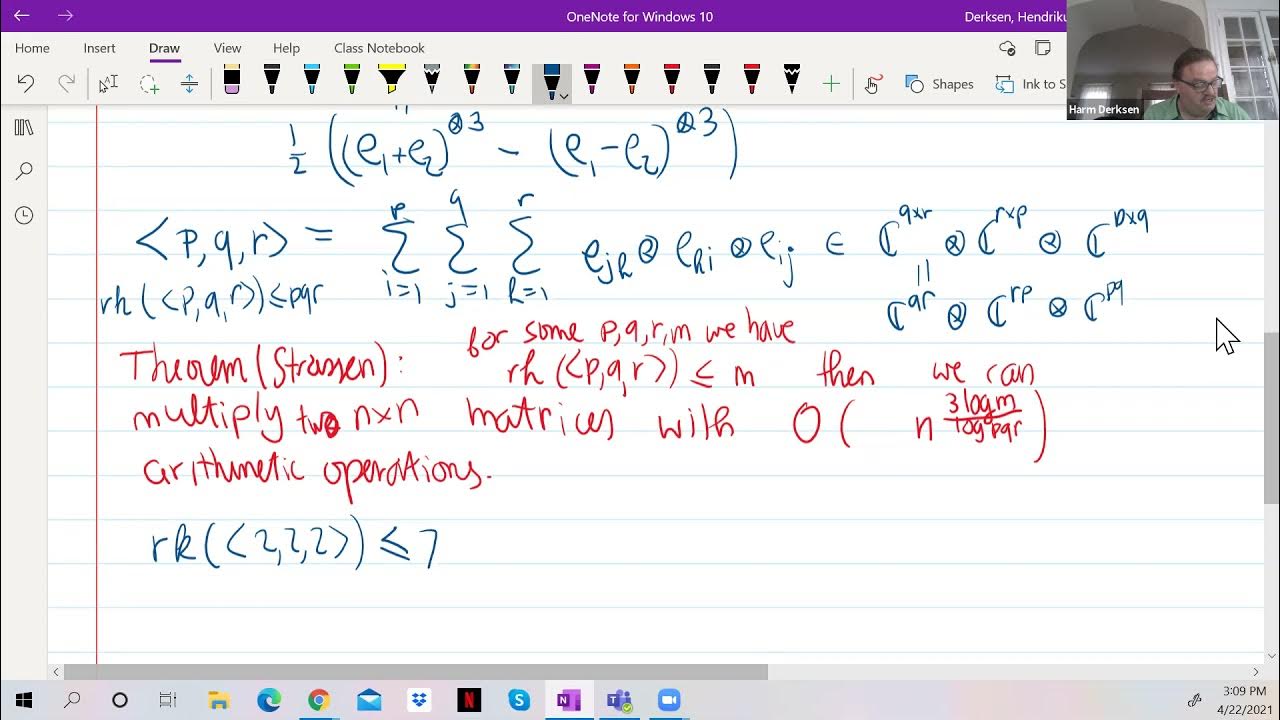 OneNote for Windows 10
Derksen, Hendriku
Home Insert Draw View Help Class Notebook
Shapes Ink to S
Harm Derksen
1/2 ((e₁+e₂)^{⊗3} − (e₁−e₂)^{⊗3})
<p,q,r> = ∑_{i=1}^{p} ∑_{j=1}^{q} ∑_{k=1}^{r} e_{jk} ⊗ e_{ki} ⊗ e_{ij} ∈ ℂ^{q×r} ⊗ ℂ^{r×p} ⊗ ℂ^{p×q}
||
rk(<p,q,r>) ≤ pqr
ℂ^{qr} ⊗ ℂ^{rp} ⊗ ℂ^{pq}
for some p,q,r,m we have
Theorem (Strassen): rk(<p,q,r>) ≤ m then we can
multiply two n×n matrices with O( n^{3 log m / log pqr} )
arithmetic operations.
rk(<2,2,2>) ≤ 7
3:09 PM
4/22/2021